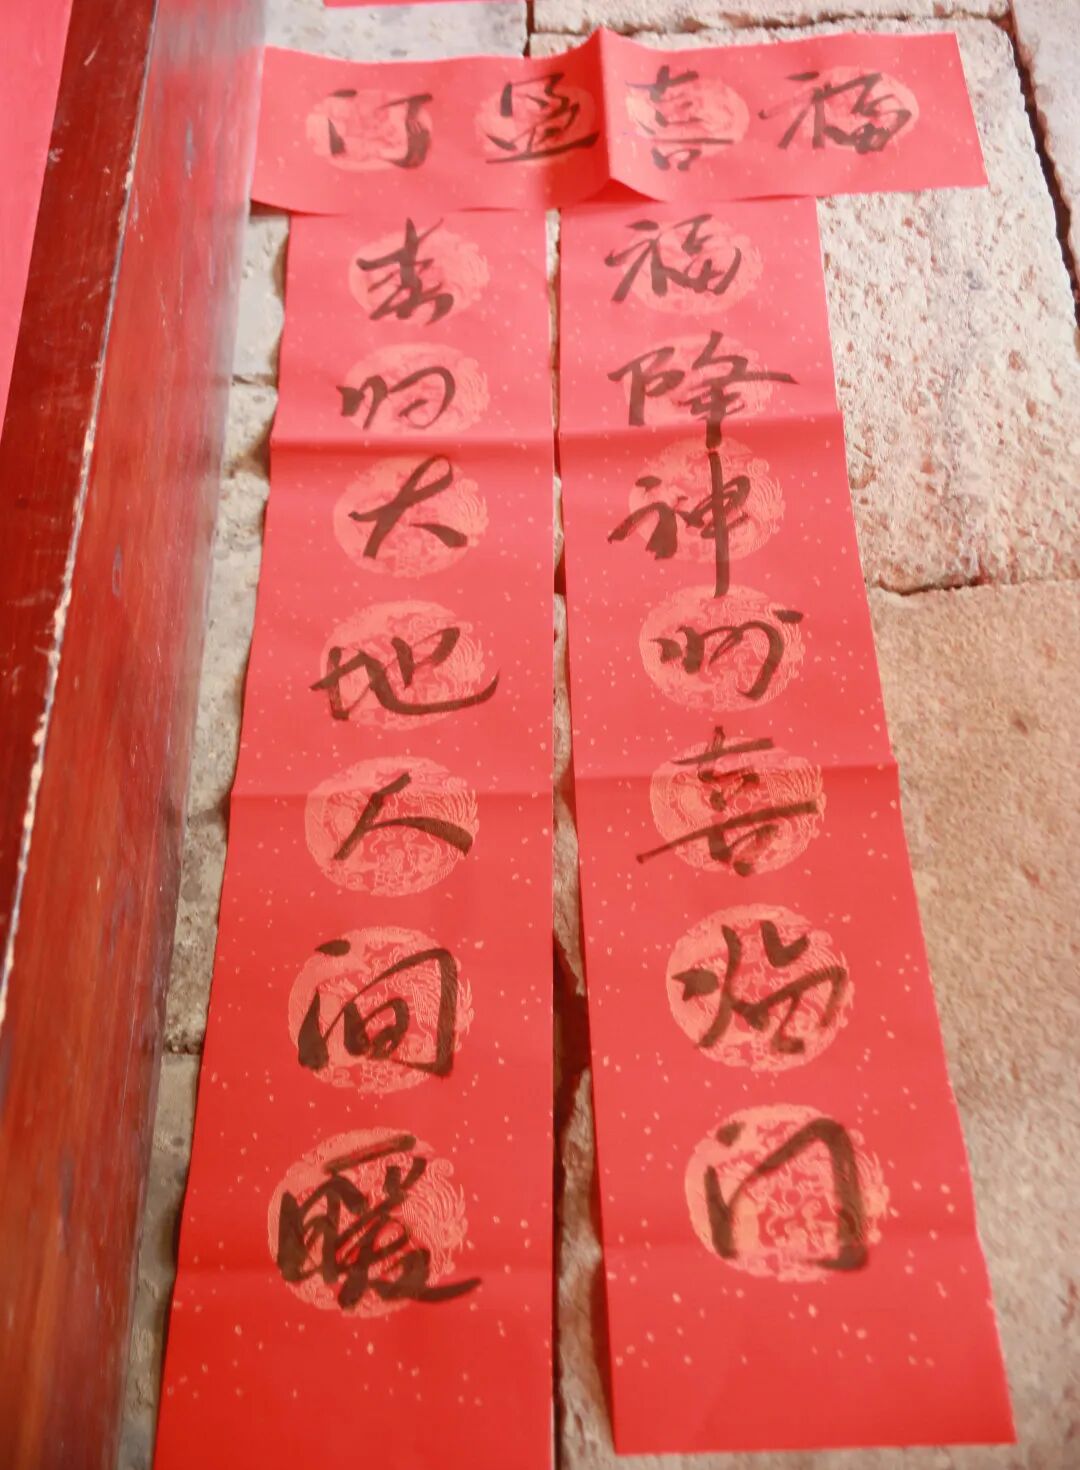 福喜盈门
福降神州喜临门
春归大地人间暖